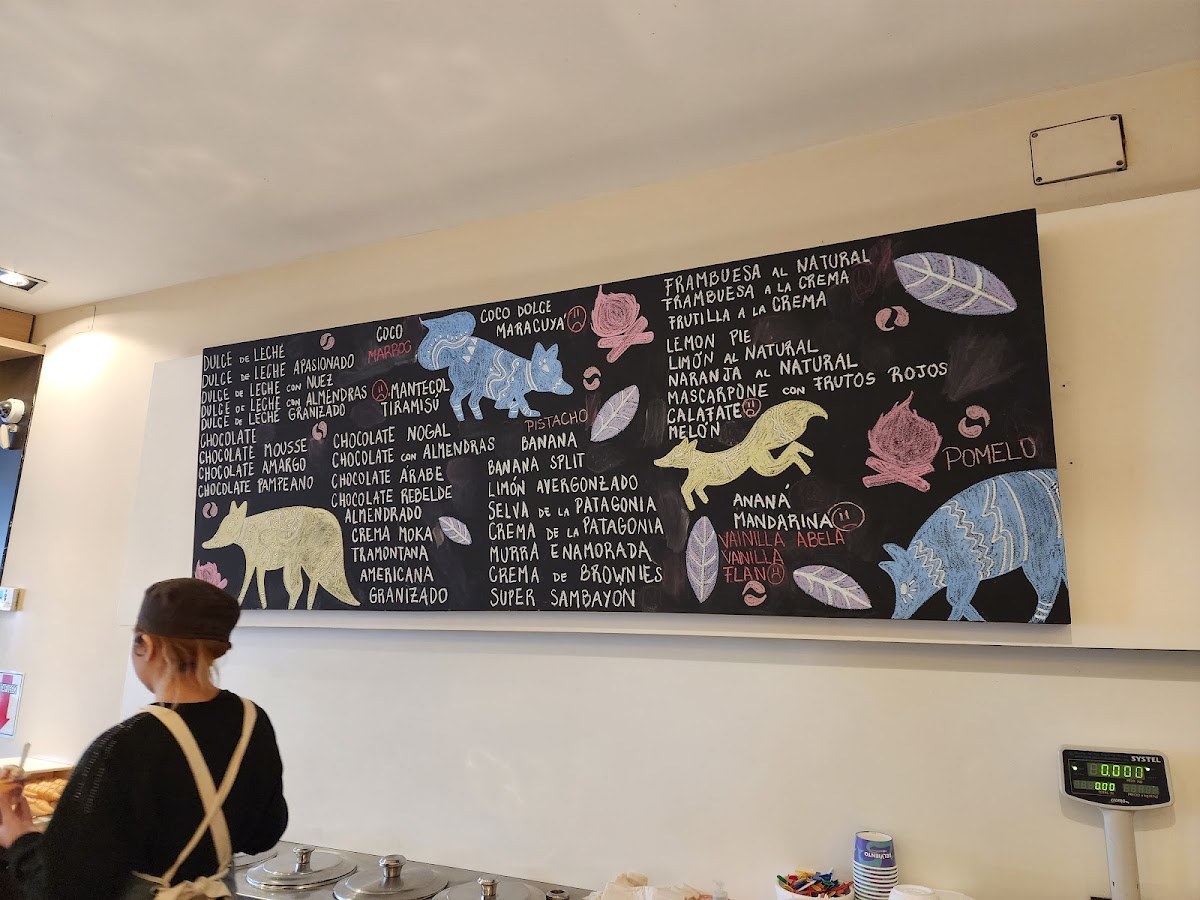 DULCE DE LECHE
DULCE DE LECHE APASIONADO
DULCE DE LECHE CON NUEZ
DULCE DE LECHE CON ALMENDRAS
DULCE DE LECHE GRANIZADO
CHOCOLATE
CHOCOLATE MOUSSE
CHOCOLATE AMARGO
CHOCOLATE PAMPEANO
COCO
MARROC
MANTECOL
TIRAMISÚ
CHOCOLATE NOGAL
CHOCOLATE CON ALMENDRAS
CHOCOLATE ÁRABE
CHOCOLATE REBELDE
ALMENDRADO
CREMA MOKA
TRAMONTANA
AMERICANA
GRANIZADO
COCO DOLCE
MARACUYÁ
PISTACHO
BANANA
BANANA SPLIT
LIMÓN AVERGONZADO
SELVA DE LA PATAGONIA
CREMA DE LA PATAGONIA
MURRA ENAMORADA
CREMA DE BROWNIES
SUPER SAMBAYON
FRAMBUESA AL NATURAL
FRAMBUESA A LA CREMA
FRUTILLA A LA CREMA
LEMON PIE
LIMÓN AL NATURAL
NARANJA AL NATURAL
MASCARPONE CON FRUTOS ROJOS
CALAFATE
MELÓN
POMELO
ANANÁ
MANDARINA
VAINILLA ABELA
VAINILLA
FLAN
SYSTEL
0.000
0.00